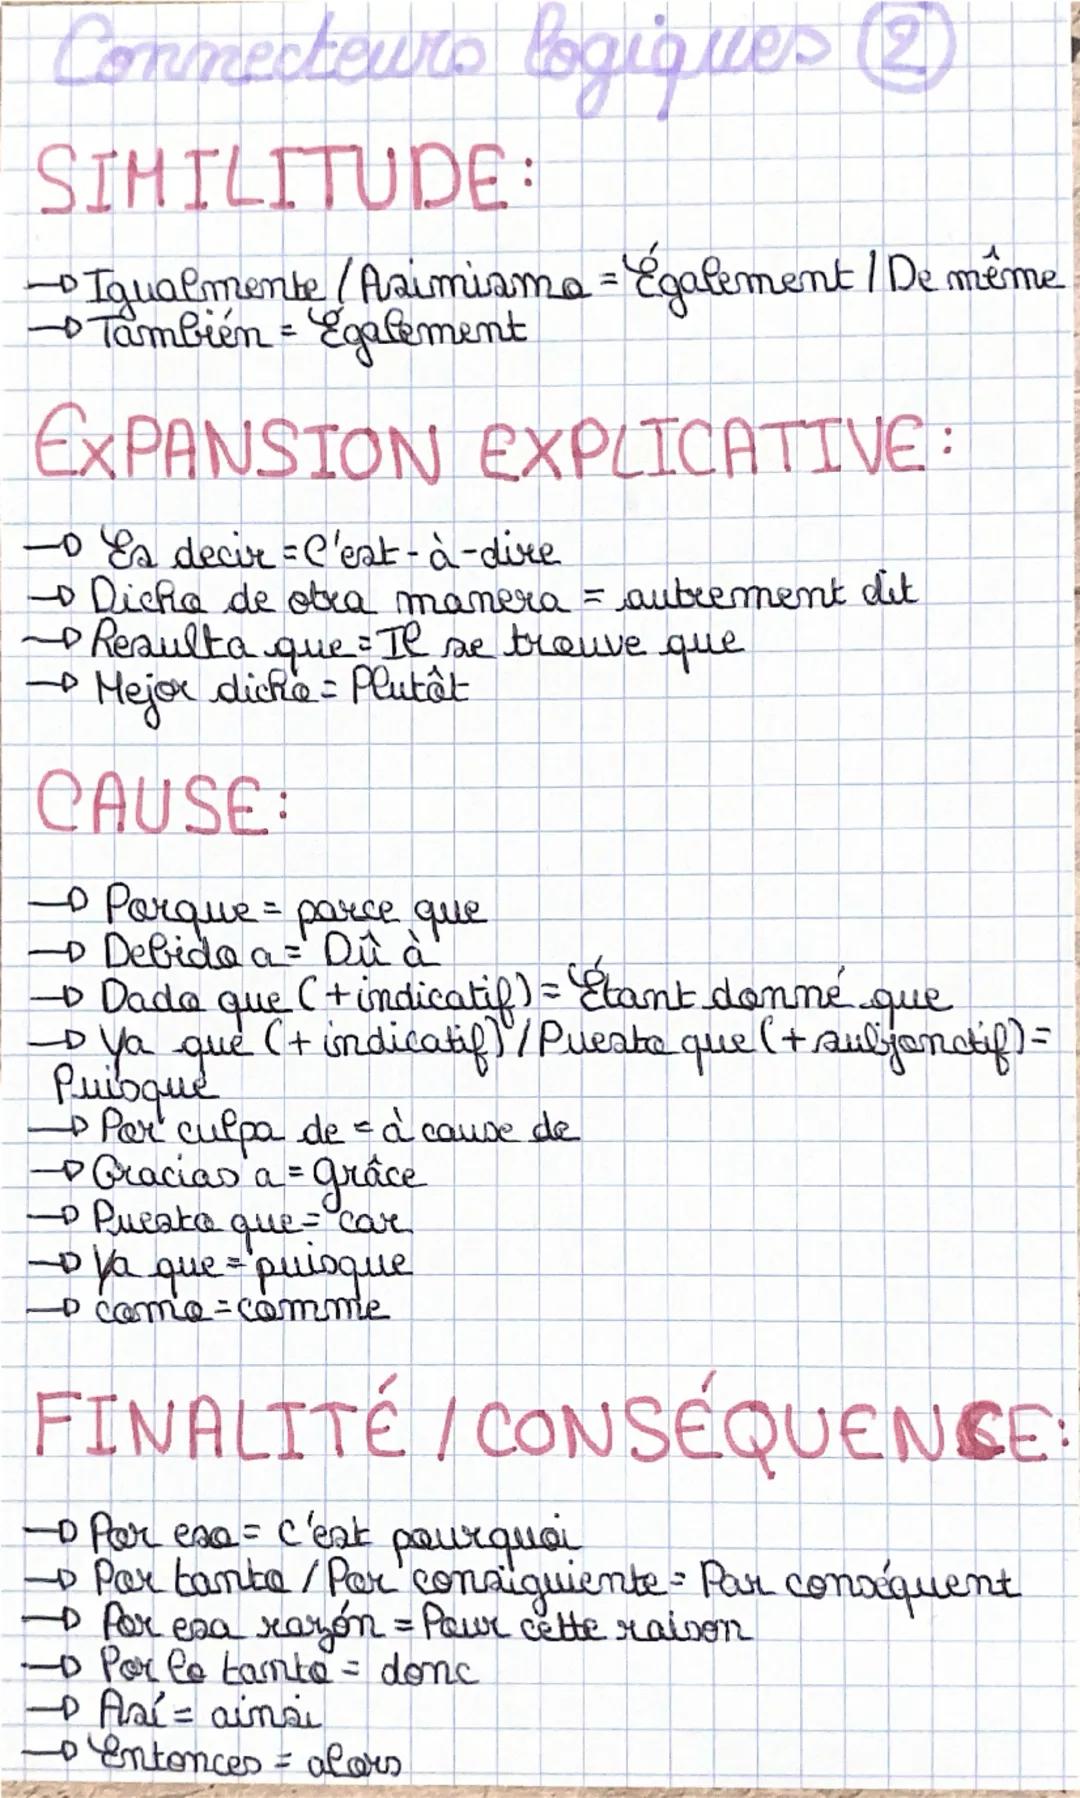 Connecteurs logiques 2
SIMILITUDE:
→ Igualmente / Asimismo = Également / De même
→ También = Également
EXPANSION EXPLICATIVE:
→ Es decir = C'est-à-dire
→ Dicho de otra manera = autrement dit
→ Resulta que = Il se trouve que
→ Mejor dicho = Plutôt
CAUSE:
→ Porque = parce que
→ Debido a = Dû à
→ Dado que (+indicatif) = Étant donné que
→ Ya que (+ indicatif) / Puesto que (+ subjonctif) =
Puisque
→ Por culpa de = à cause de
→ Gracias a = grâce
→ Puesto que = car
→ Ya que = puisque
→ como = comme
FINALITÉ / CONSÉQUENCE:
→ Por eso = C'est pourquoi
→ Por tanto / Por consiguiente = Par conséquent
→ Por esa razón = Pour cette raison
→ Por lo tanto = donc
→ Así = ainsi
→ Entonces = alors